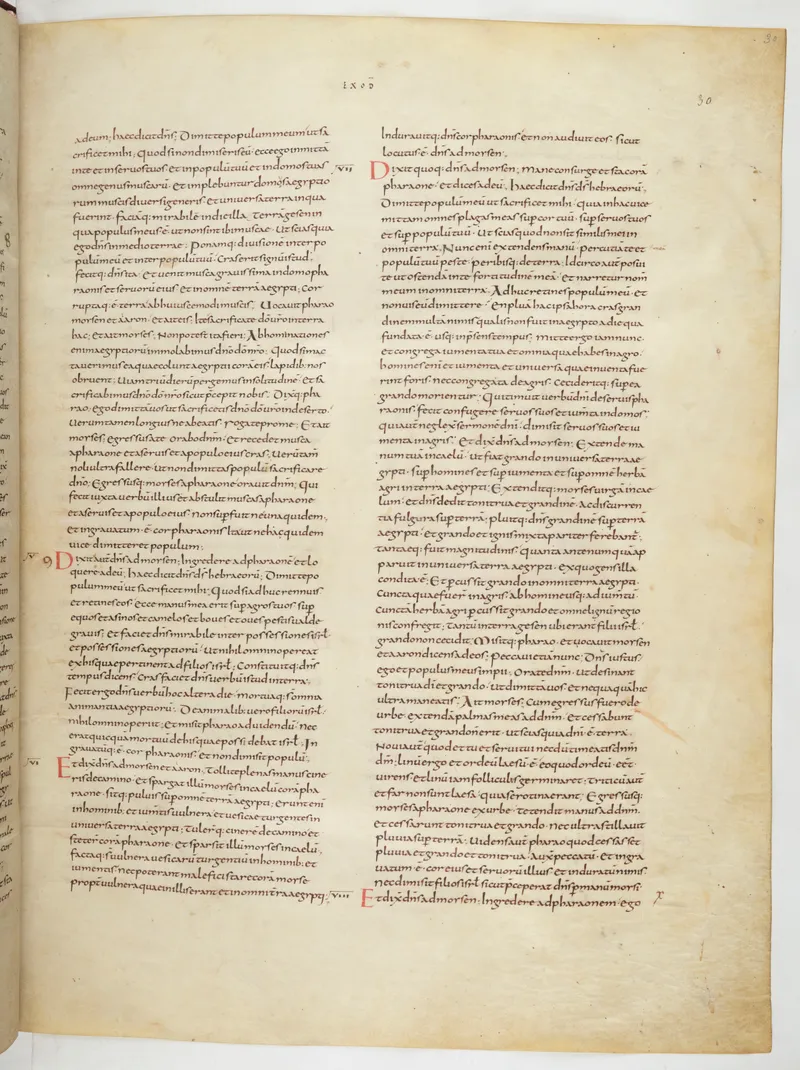 30
EXOD
30
ad eum; haec dicit dn̄s; Dimitte populum meum ut sa
crificet mihi; Quod si non dimiseris eū ecce ego inmittā
in te et in seruos tuos et in populū tuū et in domos tuas
omne genus muscarū; et inplebuntur domos aegyptio
rum muscis diuersi generis et uniuersa terra in qua
fuerint; faciāq; mirabile in die illa; terrā gesen in
qua populus meus ē; ut non sint ibi muscae; Ut scias quia
ego dn̄s in medio terrae; Ponamq; diuisionē inter po
pulū meū et inter populū tuū; Cras erit signū istud;
fecitq; dn̄s ita; Et uenit musca grauissima in domo pha
raonis et seruorū eius et in omnē terrā aegypti; Cor
ruptaq; ē terra ab huiuscemodi muscis; Uocauit pharao
morsen et aaron; et ait eis; Ite sacrificate dō uro in terra
hac; et ait morses; Non potest ita fieri; Abhominationes
enim aegyptiorū immolabimus dn̄o dō nr̄o; Quod si mac
tauerimus ea quae colunt aegyptii corā eis lapidib; nos
obruent; Uiam triū dierū pergemus in solitudinē; et sa
crificabimus dn̄o dō nr̄o sicut p̄cepit nobis; Dixitq; pha
rao; ego dimittā uos ut sacrificetis dn̄o dō uro in deserto;
Uerumtamen longius ne abeatis; rogate pro me; Et ait
morses; egressus a te orabo dnm̄; et recedet musca
a pharaone et a seruis et a populo eius cras; Uerūtam
noli ultra fallere; ut non dimittas populū sacrificare
dn̄o; Egressusq; morses a pharaone orauit dnm̄; Qui
fecit iuxta uerbū illius et abstulit muscas a pharaone
et a seruis et a populo eius; non supfuit ne una quidem;
et ingrauatum ē cor pharaonis; Ita ut ne hac quidem
uice dimitteret populum;
Dixit aut dn̄s ad morsen; Ingredere ad pharaonē et lo
quere ad eū; haec dicit dn̄s ds̄ hebraeorū; Dimitte po
pulum meū ut sacrificet mihi; Quod si adhuc rennuis
et retines eos; Ecce manus mea erit sup agros tuos; sup
equos et asinos et camelos et boues et oues pestis ualde
grauis; et faciet dn̄s mirabile inter possessiones isrl̄
et possessiones aegyptiorū; Ut nihil omnino pereat
ex his quae pertinent ad filios isrl̄; Constituitq; dn̄s
tempus dicens; Cras faciet dn̄s uerbū istud in terra;
Fecit ergo dn̄s uerbū hoc altera die; mortuaq; s̄ omnia
animantia aegyptiorū; De animalib; uero filiorū isrl̄
nihil omnino periit; et misit pharao ad uidendū; nec
erat quicquā mortuū de his quae possidebat isrl̄; In
grauatūq; ē cor pharaonis et non dimisit populū;
Et dix̄ dn̄s ad morsen et aaron; Tollite plenas manus cine
ris de camino; et spargat illū morses in caelū corā pha
raone; sitq; puluis sup omnē terrā aegypti; erunt eni
in hominib; et iumtis uulnera et uesicae turgentes in
uniuersa terra aegypti; tulerq; cinerē de camino et
stetert corā pharaone; et sparsit illū morses in caelū;
factaq; s̄ uulnera uesicarū turgentiū in hominib; et
iumentis; nec poterant malefici stare corā morse
propt uulnera quae in illis erant et in omni terra aegypti;
VII
VI
VIII
Indurauitq; dn̄s cor pharaonis et non audiuit eos; sicut
locutus ē dn̄s ad morsen;
Dixit quoq; dn̄s ad morsen; mane consurge et sta corā
pharaone; et dices ad eū; haec dicit dn̄s ds̄ hebraeorū;
Dimitte populū meū ut sacrificet mihi; quia in hac uice
mittam omnes plagas meas sup cor tuū; sup seruos tuos
et sup populū tuū; Ut scias quod non sit similis mei in
omni terra; Nunc eni extendens manū percutiā te et
populū tuū peste; peribisq; de terra; Idcirco aut posui
te ut ostendā in te fortitudinē meā; et narretur nom̄
meum in omni terra; Adhuc retines populū meū; et
non uis eū dimittere; En pluā hac ipsa hora cras gran
dinem multā nimis; qualis non fuit in aegypto a die qua
fundata ē; usq; in p̄sens tempus; Mitte ergo iam nunc
et congrega iumenta tua et omnia quae habes in agro;
homines eni et iumenta et uniuersa quae inuenta fue
rint foris; nec congregata de agris; Cecideritq; sup ea
grando morientur; Qui timuit uerbū dn̄i de seruis pha
raonis; fecit confugere seruos suos et iumta in domos;
qui aut neglex̄ sermonē dn̄i; dimisit seruos suos et iu
menta in agris; Et dix̄ dn̄s ad morsen; Extende ma
num tuā in caelū; ut fiat grando in uniuersa terra ae
gypti; sup homines et sup iumenta et sup omnē herbā
agri in terra aegypti; Extenditq; morses uirgā in cae
lum; et dn̄s dedit tonitrua et grandinē; Ac discurren
tia fulgura sup terrā; pluitq; dn̄s grandinē sup terrā
aegypti; et grando et ignis mixta pariter ferebant̄;
tantaeq; fuit magnitudinis; quanta ante nunquā ap
paruit in uniuersa terra aegypti; ex quo gens illa
condita ē; Et pcussit grando in omni terra aegypti;
Cuncta quae fuer̄ in agris; ab homine usq; ad iumtū;
Cunctā herbā agri pcussit grando et omne lignū regio
nis confregit; tantū in terra gesen ubi erant filii isrl̄
grando non cecidit; Misitq; pharao; et uocauit morsen
et aaron dicens ad eos; Peccaui etiā nunc; Dn̄s iustus;
ego et populus meus impii; Orate dnm̄; Ut desinant
tonitrua dī et grando; Ut dimittā uos et nequaquā hic
ultra maneatis; Ait morses; Cum egressus fuero de
urbe; extendā palmas meas ad dnm̄; et cessabunt
tonitrua et grando n̄ erit; ut scias quia dn̄i ē terra;
Noui aut̄ quod et tu et serui tui necdū timeatis dnm̄
dm̄; Linū ergo et ordeū laesū ē; eo quod ordeū eēt
uirens et linū iam folliculis germinaret; triticū aut̄
et far non sunt laesa; quia serotina erant; Egressusq;
morses a pharaone ex urbe; tetendit manus ad dnm̄;
et cessarunt tonitrua et grando; nec ultra stillauit
pluuia sup terrā; Uidens aut̄ pharao quod cessasset
pluuia et grando et tonitrua; Aux̄ peccatū; et ingra
uatum ē cor eius et seruorū illius et induratū nimis
nec dimisit filios isrl̄ sicut p̄ceperat dn̄s p manū morsi;
Et dix̄ dn̄s ad morsen; Ingredere ad pharaonem; ego